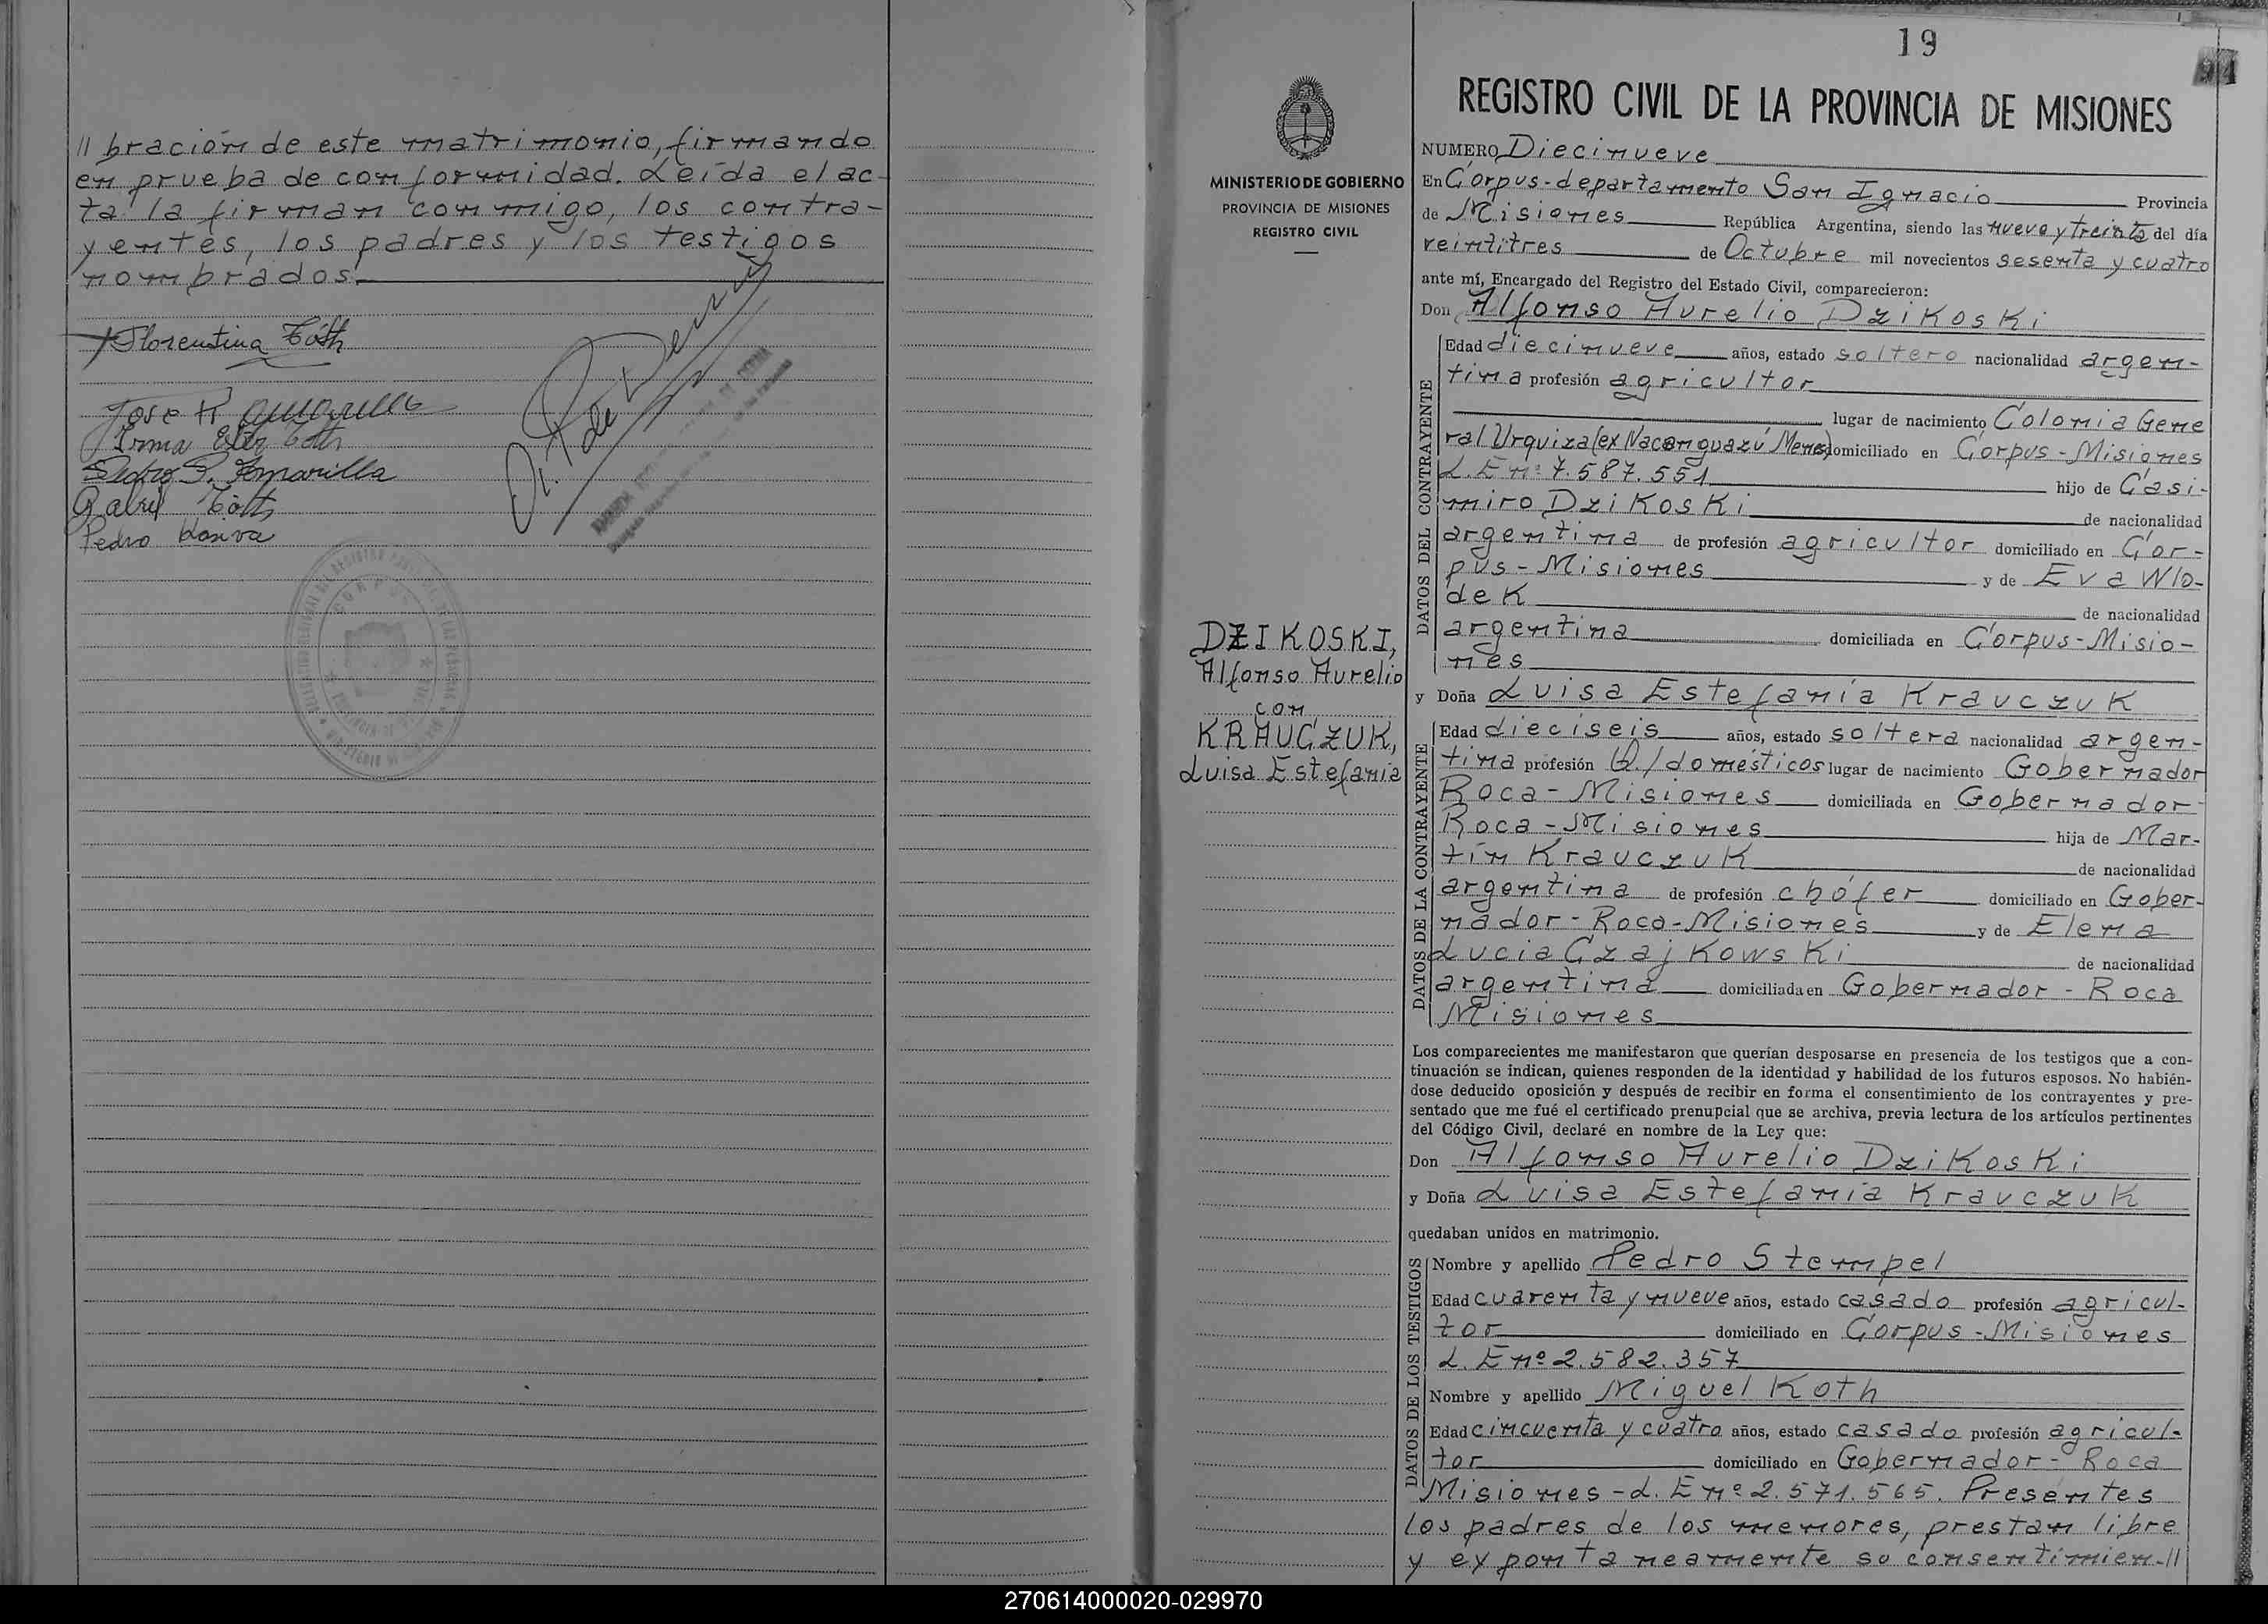 // bración de este matrimonio, firmando
en prueba de conformidad. Leída el ac-
ta la firman conmigo, los contra-
yentes, los padres y los testigos
nombrados.
Florentina Tóth
José
Irma Ester Toth
Pedro Amarilla
Gabriel Tóth
Pedro
19
MINISTERIO DE GOBIERNO
PROVINCIA DE MISIONES
REGISTRO CIVIL
DZIKOSKI,
Alfonso Aurelio
con
KRAUCZUK,
Luisa Estefania
REGISTRO CIVIL DE LA PROVINCIA DE MISIONES
NUMERO Diecinueve
En Córpus - departamento San Ignacio Provincia
de Misiones República Argentina, siendo las nueve y treinta del día
veintitres de Octubre mil novecientos sesenta y cuatro
ante mí, Encargado del Registro del Estado Civil, comparecieron:
Don Alfonso Aurelio Dzikoski
DATOS DEL CONTRAYENTE
Edad diecinueve años, estado soltero nacionalidad argen-
tina profesión agricultor
lugar de nacimiento Colonia Gene
ral Urquiza (ex Ñacanguazú Mnes) domiciliado en Córpus - Misiones
L.E nº 7.587.551 hijo de Casi-
miro Dzikoski de nacionalidad
argentina de profesión agricultor domiciliado en Cór-
pus - Misiones y de Eva Wlo-
dek de nacionalidad
argentina domiciliada en Córpus - Misio-
nes
y Doña Luisa Estefanía Krauczuk
DATOS DE LA CONTRAYENTE
Edad dieciseis años, estado soltera nacionalidad argen-
tina profesión Q./domésticos lugar de nacimiento Gobernador
Roca - Misiones domiciliada en Gobernador
Roca - Misiones hija de Mar-
tín Krauczuk de nacionalidad
argentina de profesión chófer domiciliado en Gober-
nador - Roca - Misiones y de Elena
Lucia Czajkowski de nacionalidad
argentina domiciliada en Gobernador - Roca
Misiones
Los comparecientes me manifestaron que querían desposarse en presencia de los testigos que a con-
tinuación se indican, quienes responden de la identidad y habilidad de los futuros esposos. No habién-
dose deducido oposición y después de recibir en forma el consentimiento de los contrayentes y pre-
sentado que me fué el certificado prenupcial que se archiva, previa lectura de los artículos pertinentes
del Código Civil, declaré en nombre de la Ley que:
Don Alfonso Aurelio Dzikoski
y Doña Luisa Estefanía Krauczuk
quedaban unidos en matrimonio.
DATOS DE LOS TESTIGOS
Nombre y apellido Pedro Stempel
Edad cuarenta y nueve años, estado casado profesión agricul-
tor domiciliado en Córpus - Misiones
L. E nº 2.582.357
Nombre y apellido Miguel Koth
Edad cincuenta y cuatro años, estado casado profesión agricul-
tor domiciliado en Gobernador - Roca
Misiones - L. E nº 2.571.565. Presentes
los padres de los menores, prestan libre
y expontaneamente su consentimien-//
270614000020-029970